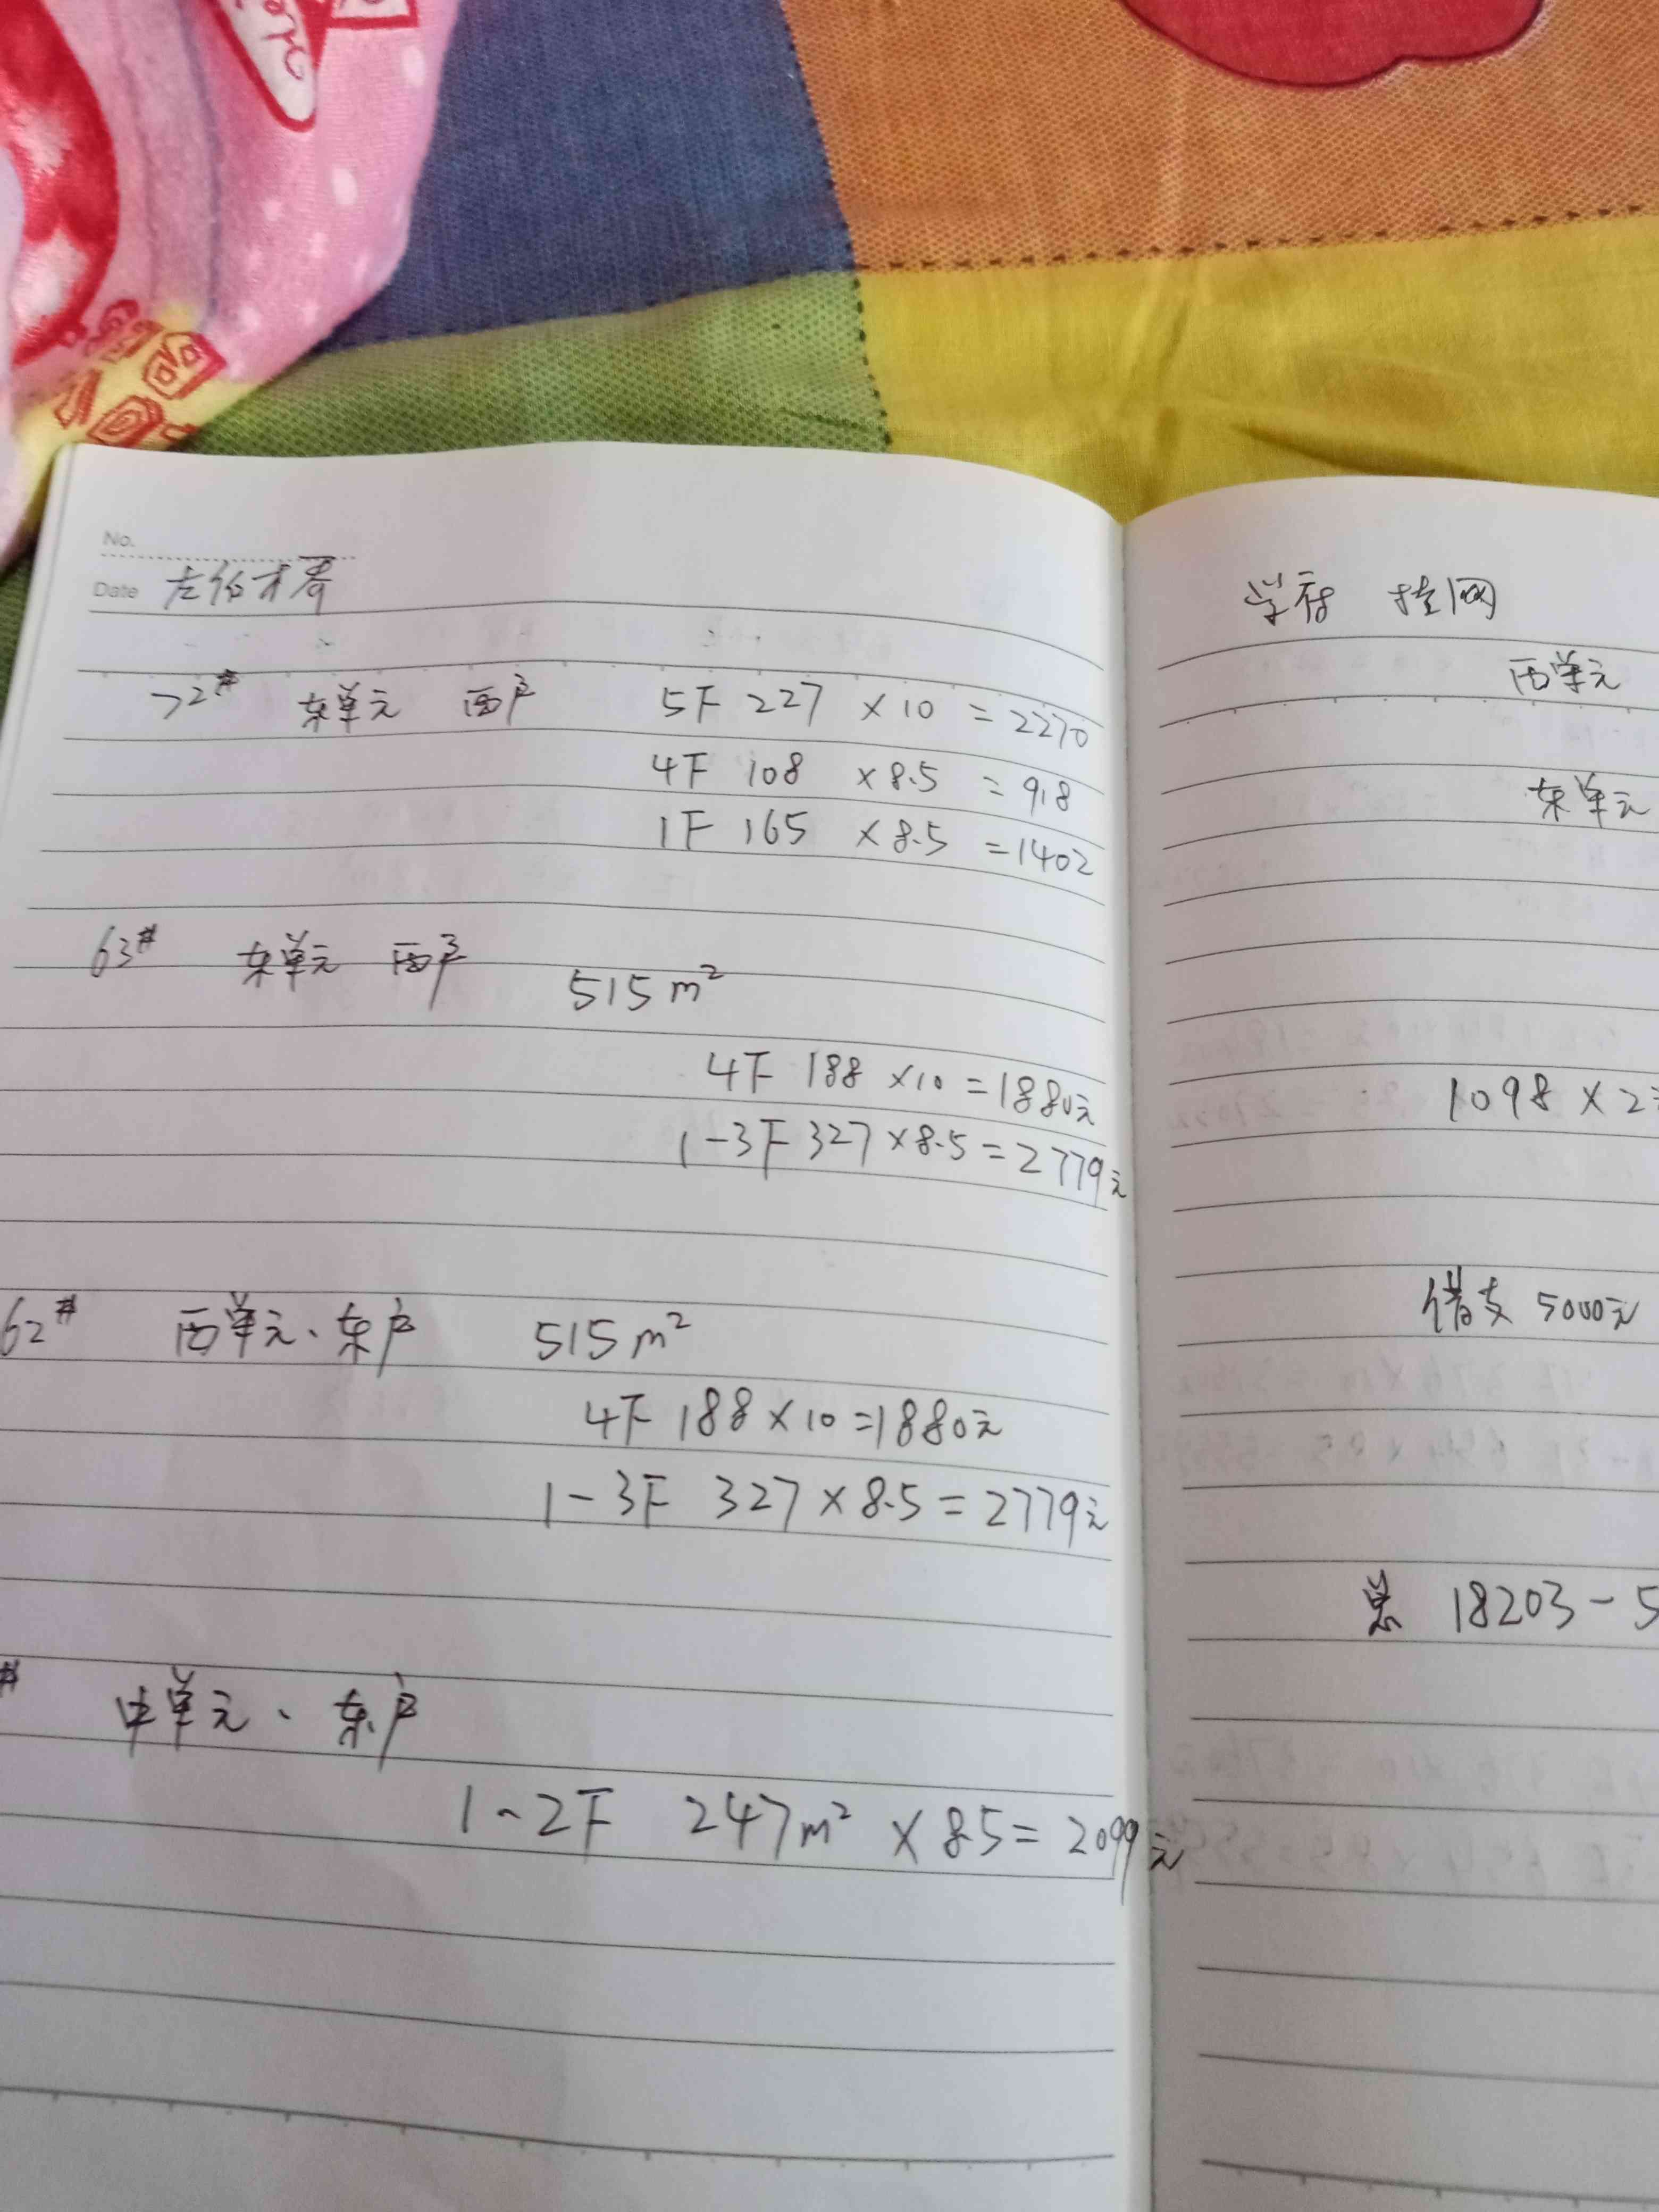 No.
Date
72# 东单元 西户 5F 227 ×10 =2270
4F 108 ×8.5 =918
1F 165 ×8.5 =1402
63# 东单元 西户 515m²
4F 188 ×10 =1880元
1-3F 327×8.5=2779元
62# 西单元、东户 515m²
4F 188×10=1880元
1-3F 327×8.5=2779元
# 中单元、东户
1-2F 247m² ×8.5=2099元
挂网
西单元
东单元
1098×2
借支 5000元
总 18203-5